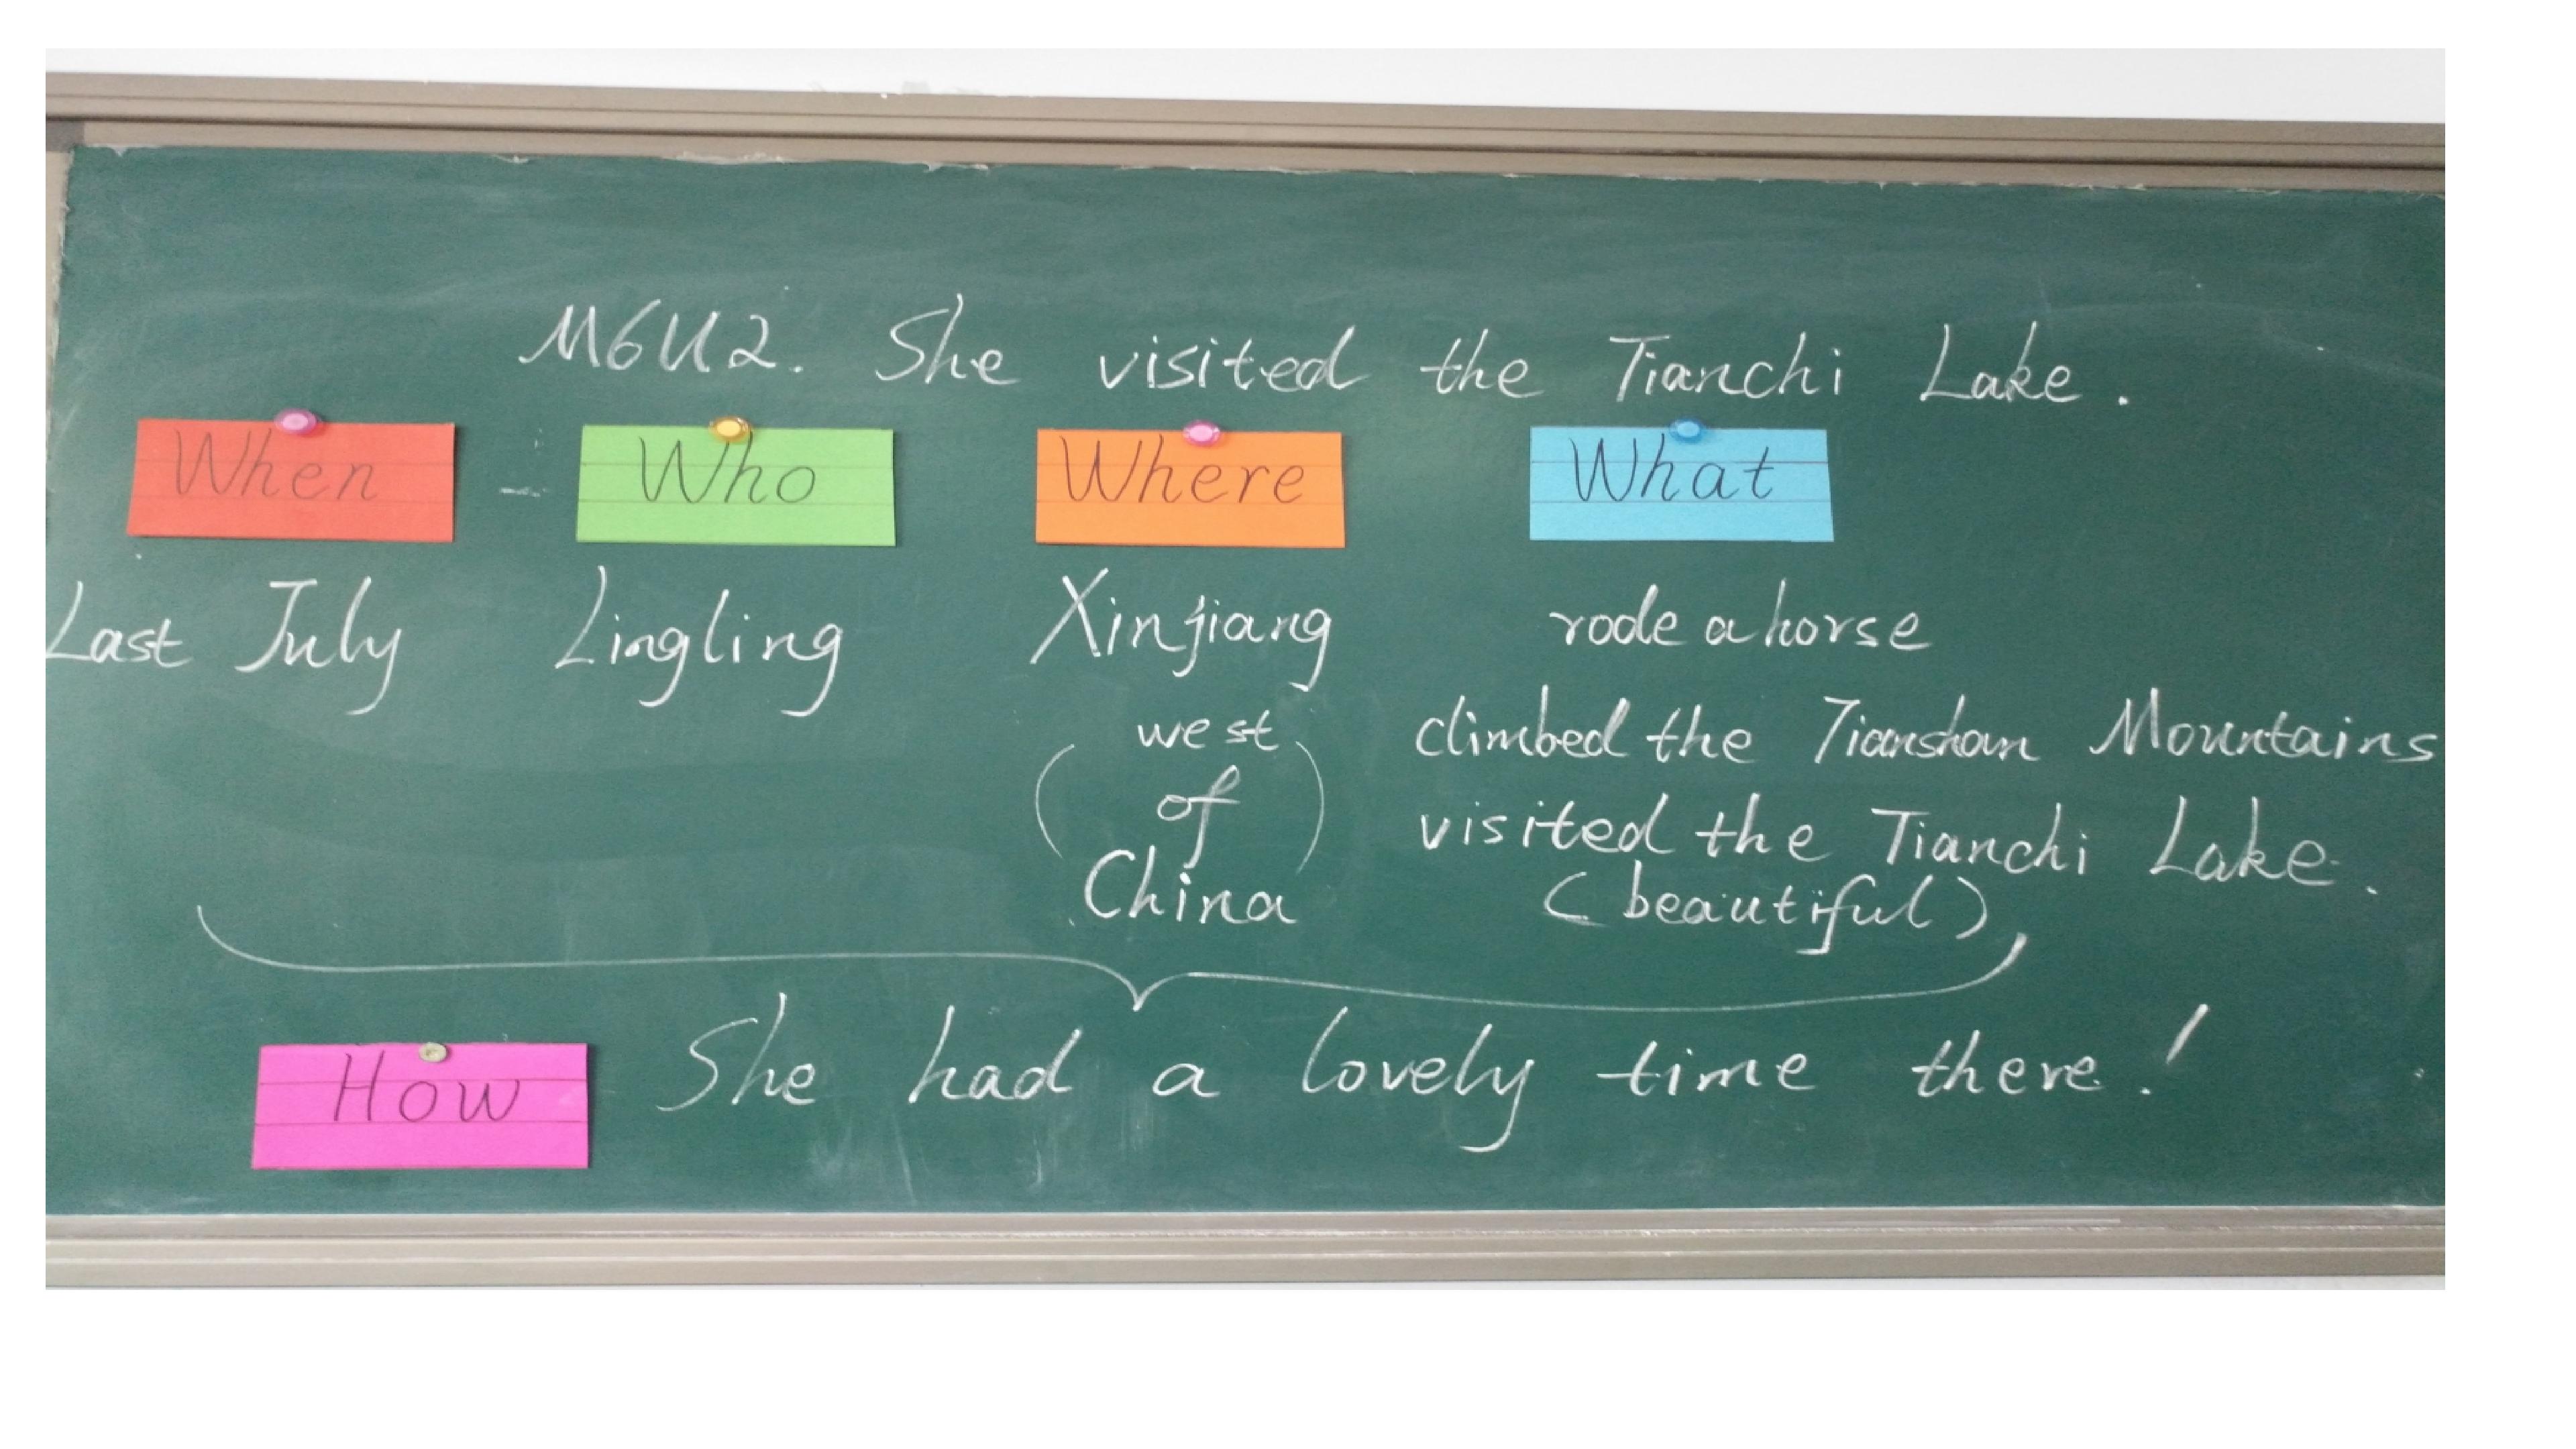 M6U2. She visited the Tianchi Lake.
When Who Where What
Last July Lingling Xinjiang rode a horse
west climbed the Tianshan Mountains
( of ) visited the Tianchi Lake.
China (beautiful)
How She had a lovely time there!